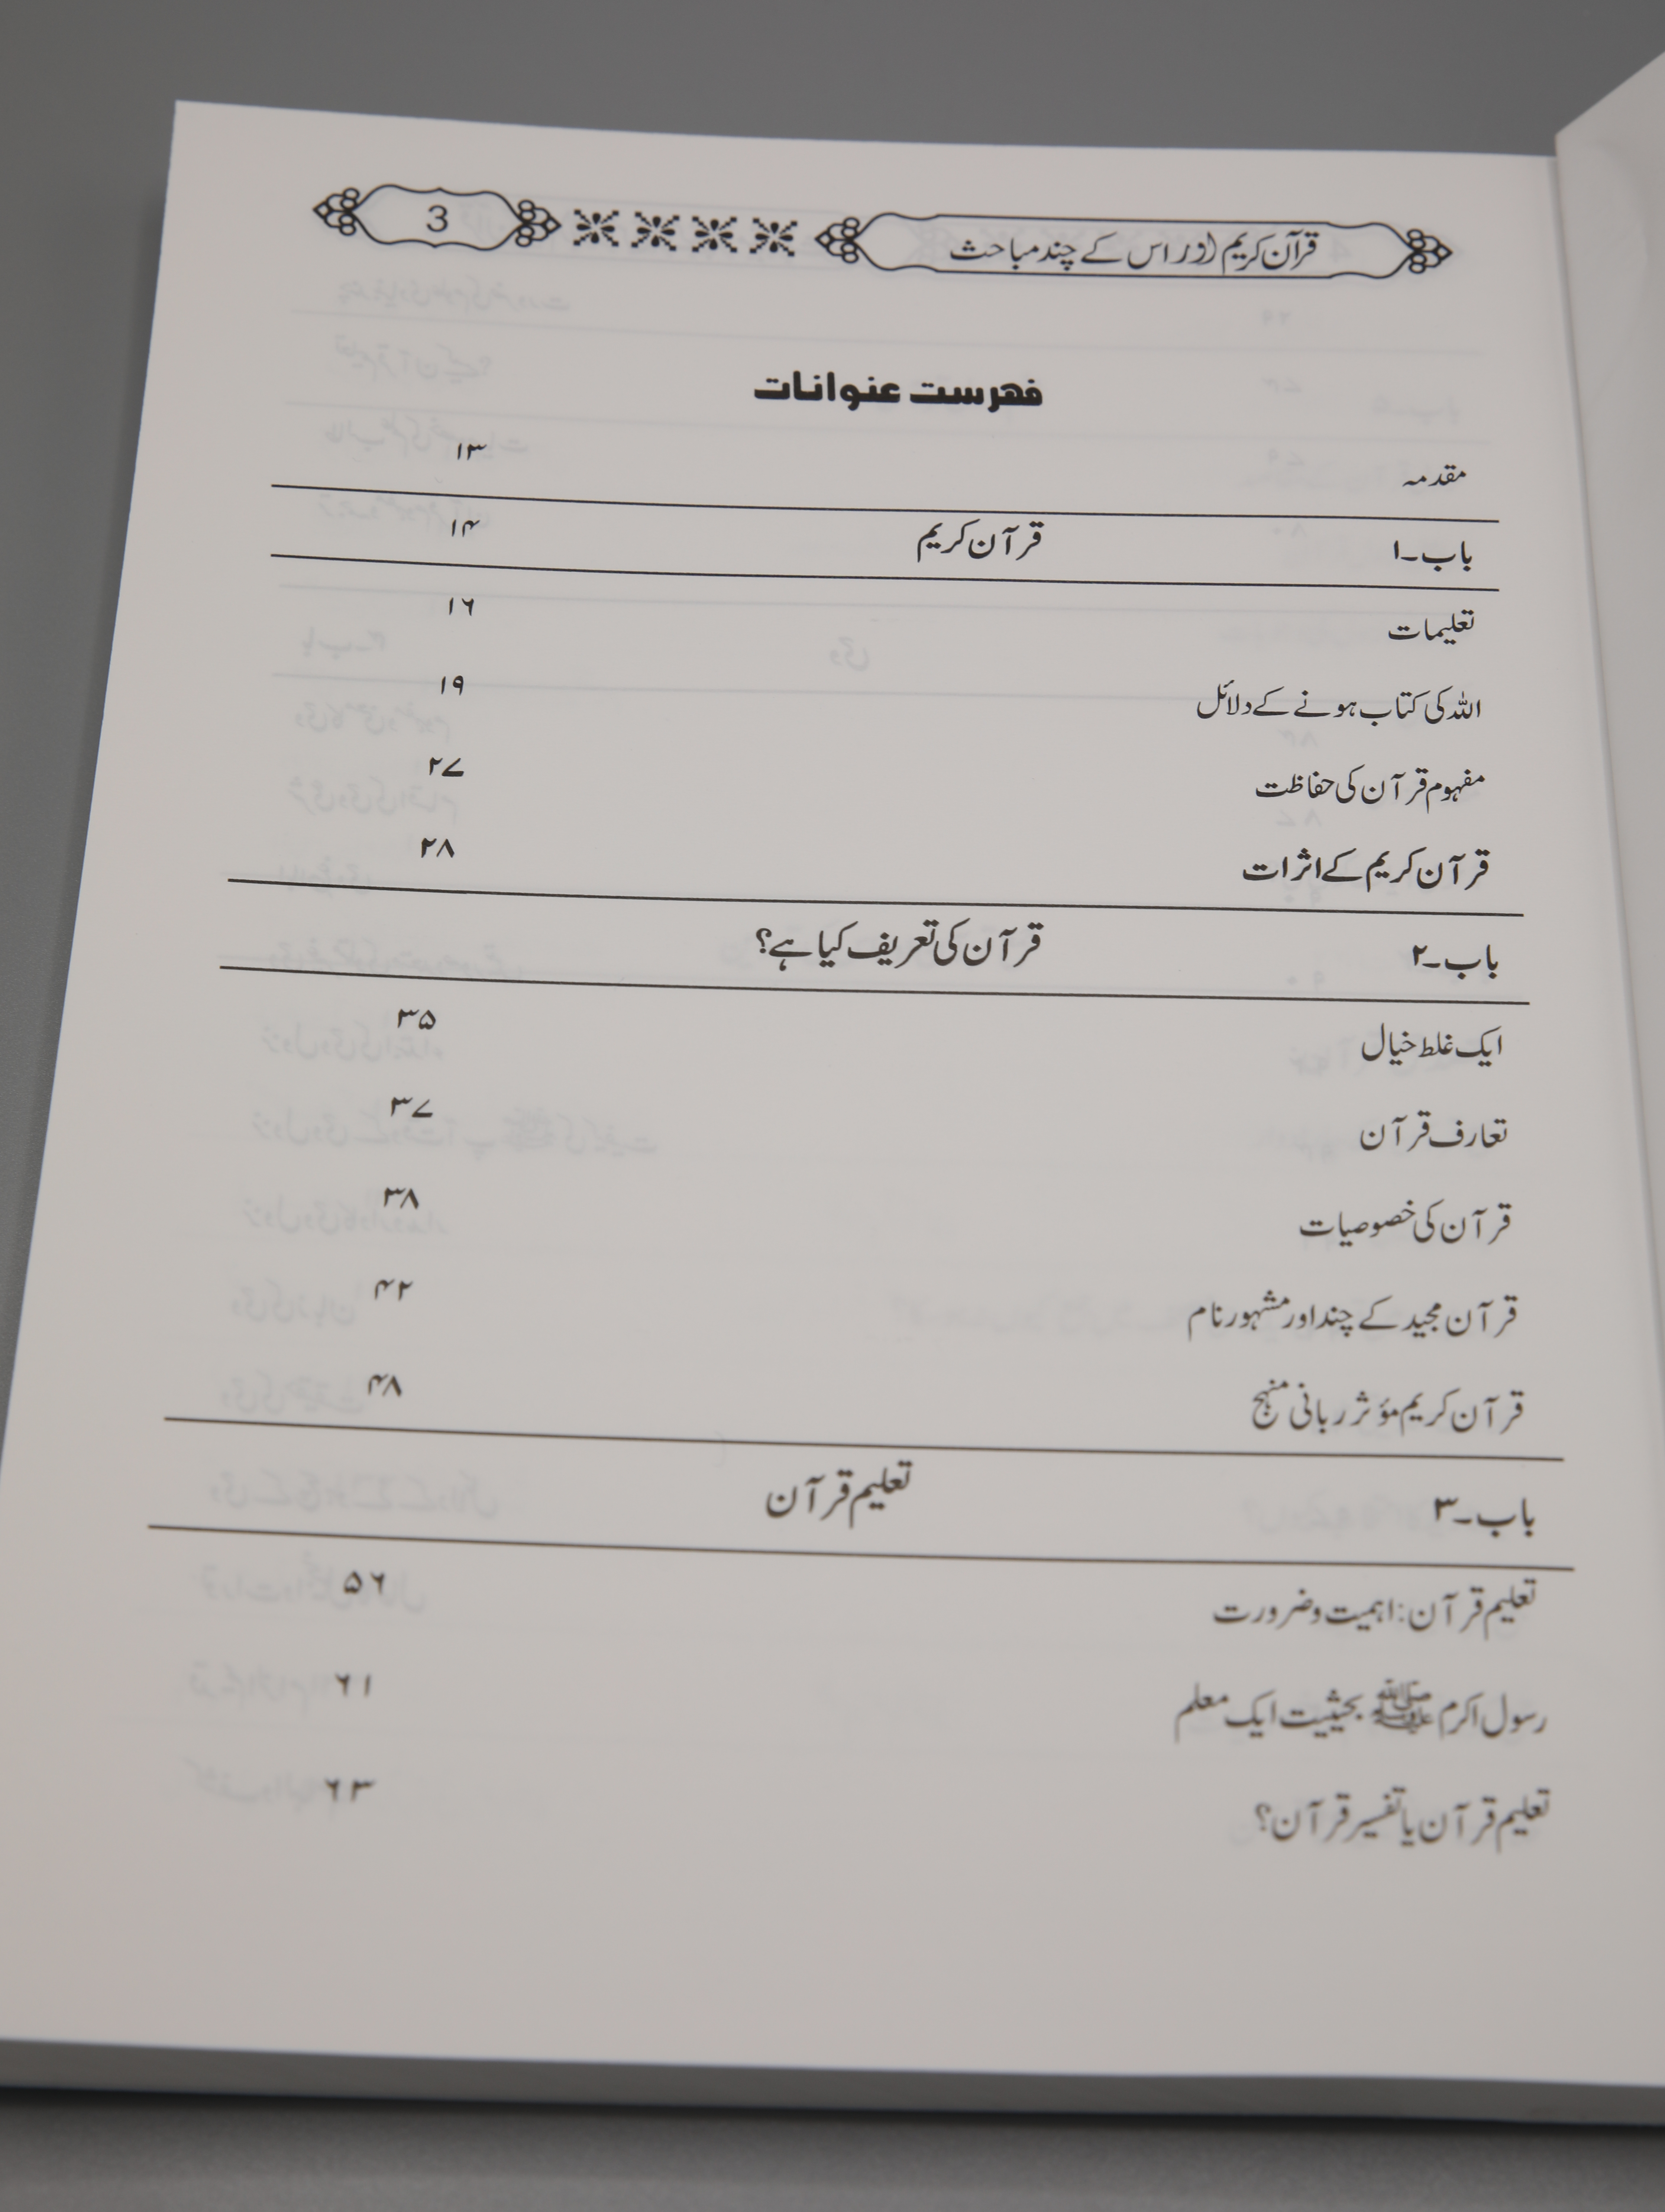 قرآن کریم اور اس کے چند مباحث 3
فہرست عنوانات
مقدمہ ۱۳
باب۔۱ قرآن کریم ۱۴
تعلیمات ۱۶
اللہ کی کتاب ہونے کے دلائل ۱۹
مفہوم قرآن کی حفاظت ۲۷
قرآن کریم کے اثرات ۲۸
باب۔۲ قرآن کی تعریف کیا ہے؟
ایک غلط خیال ۳۵
تعارف قرآن ۳۷
قرآن کی خصوصیات ۳۸
قرآن مجید کے چند اور مشہور نام ۴۲
قرآن کریم مؤثر ربانی منہج ۴۸
باب۔۳ تعلیم قرآن
تعلیم قرآن: اہمیت و ضرورت ۵۶
رسول اکرم ﷺ بحیثیت ایک معلم ۶۱
تعلیم قرآن یا تفسیر قرآن؟ ۶۳